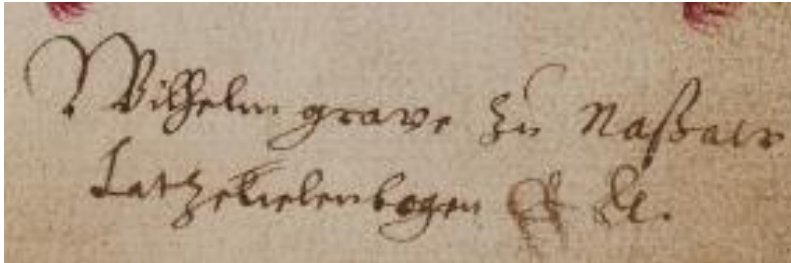 Wilhelm grave zu Naßaw
Catzenelenbogen